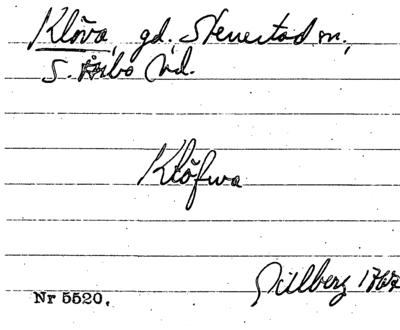 Klöva, gd, Stenestad sn.,
S. Åsbo hd.
Klöfwa
Gillberg 1767
Nr 5520.